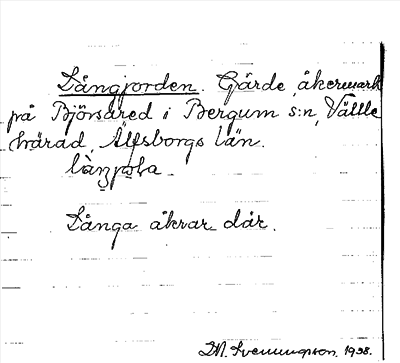 Långjorden. Gärde, åkermark
på Björsared i Bergum s:n, Vättle
härad, Älfsborgs län.
Långa åkrar där.
1938.